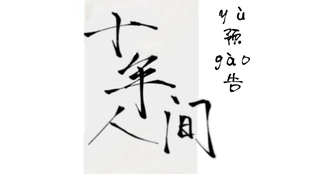 十年
人间
yù
预
gào
告